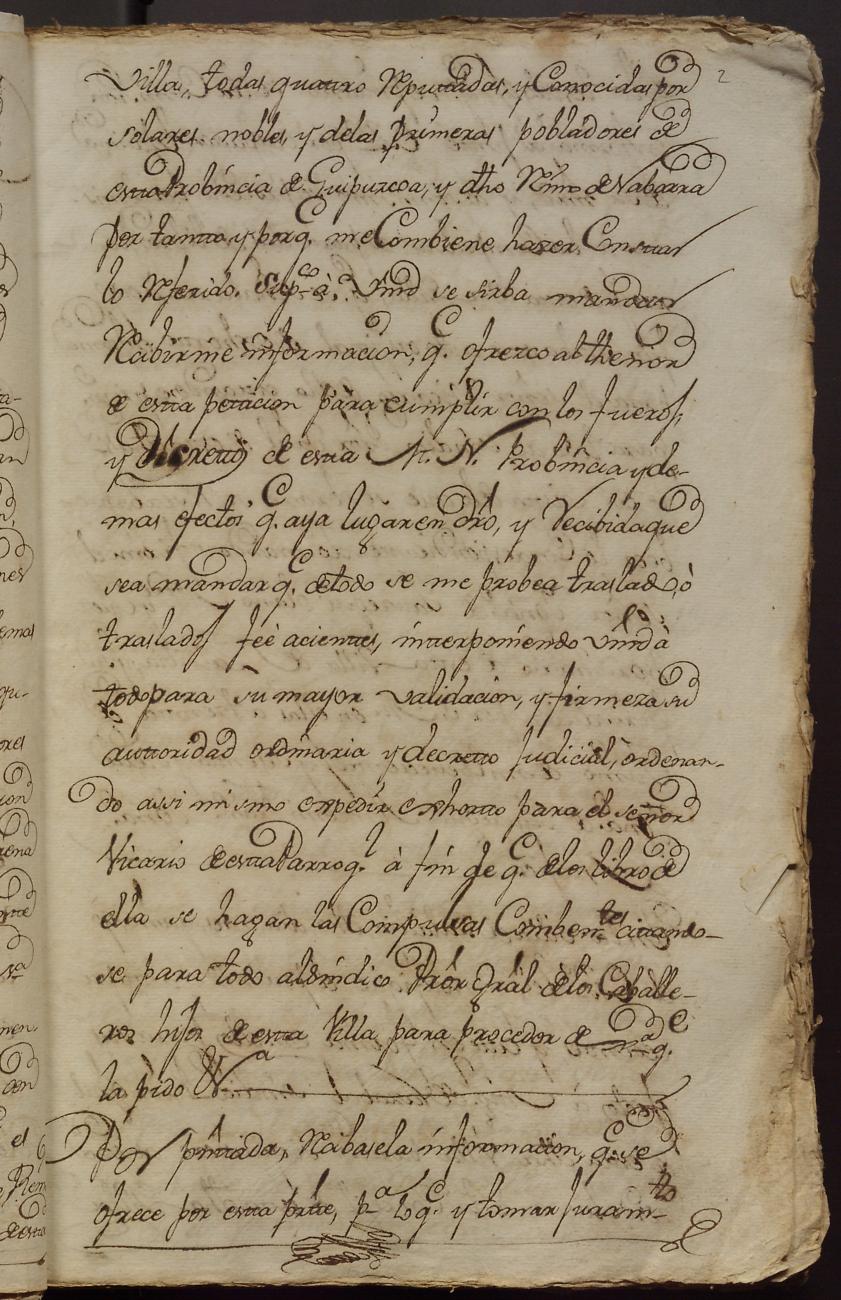 2
Villa, todas quattro Reputtadas, y Conocidas por
solares nobles, y delas primeras pobladores de
estta Probincia de Guipuzcoa, y dho Rno de Nabarra
Por tantto, y porq.e me Combiene hazer Consttar
lo Referido. Sup.co à Vmd se sirba mandar
Recibirme ynformacion, q.e ofrezco al thenor
de estta peticion para cumplir con los fueros,
y Decretos de estta M. N. Probincia y de-
mas efectos q.e aya lugar en dro, y Recibida que
sea mandar q.e de todo se me probea traslado, ò
traslados feè acienttes, intterponiendo Vmd à
todo para su mayor validacion, y firmeza su
auttoridad ordinaria y decretto Judicial, ordenan-
do assi mismo expedir exhortto para el señor
Vicario de estta Parroq.l à fin de q.e delos libros de
ella se hagan las Compulsas Combem.tes cittando-
se para todo al Sindico Pror Gral delos Caballe-
ros hijos de estta Villa para proceder de
la pido &.a
Por pnttada, Recibasela informacion, q.e se
ofrece por estta partte, p.a lo q.e y tomar Juram.to